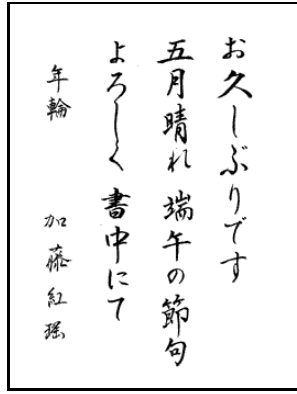 お久しぶりです
五月晴れ 端午の節句
よろしく 書中にて
年輪 加藤紅瑶